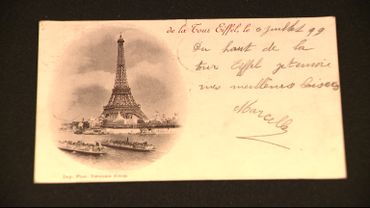 de la Tour Eiffel, le juillet 99
Du haut de la
tour Eiffel j'envoie
mes meilleurs baisers
Marcelle
Imp. Phot.